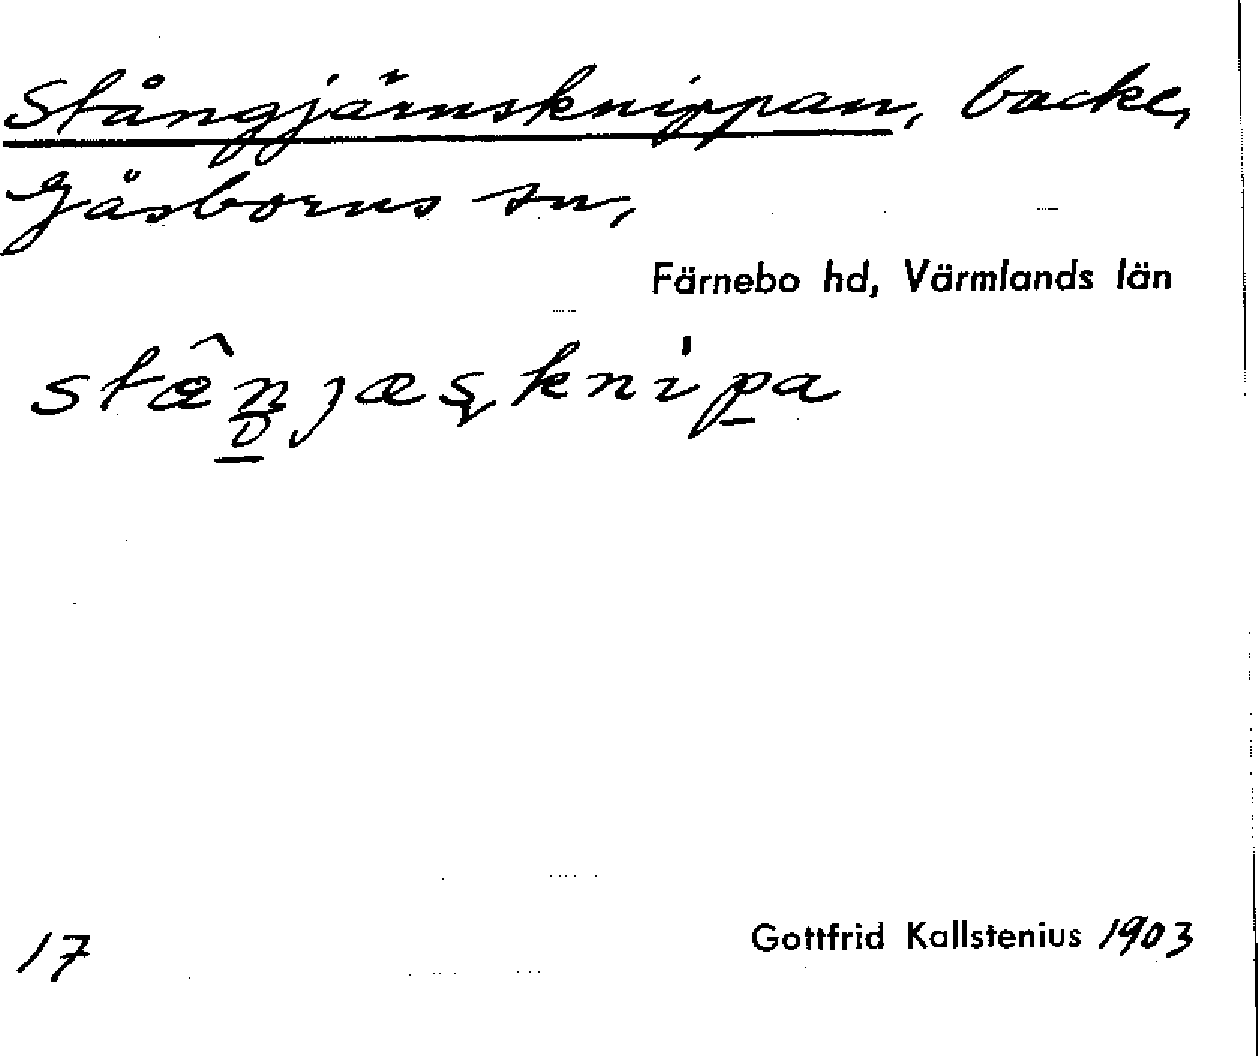 Stångjärnsknippan, backe,
Gåsborns sn,
Färnebo hd, Värmlands län
17
Gottfrid Kallstenius 1903